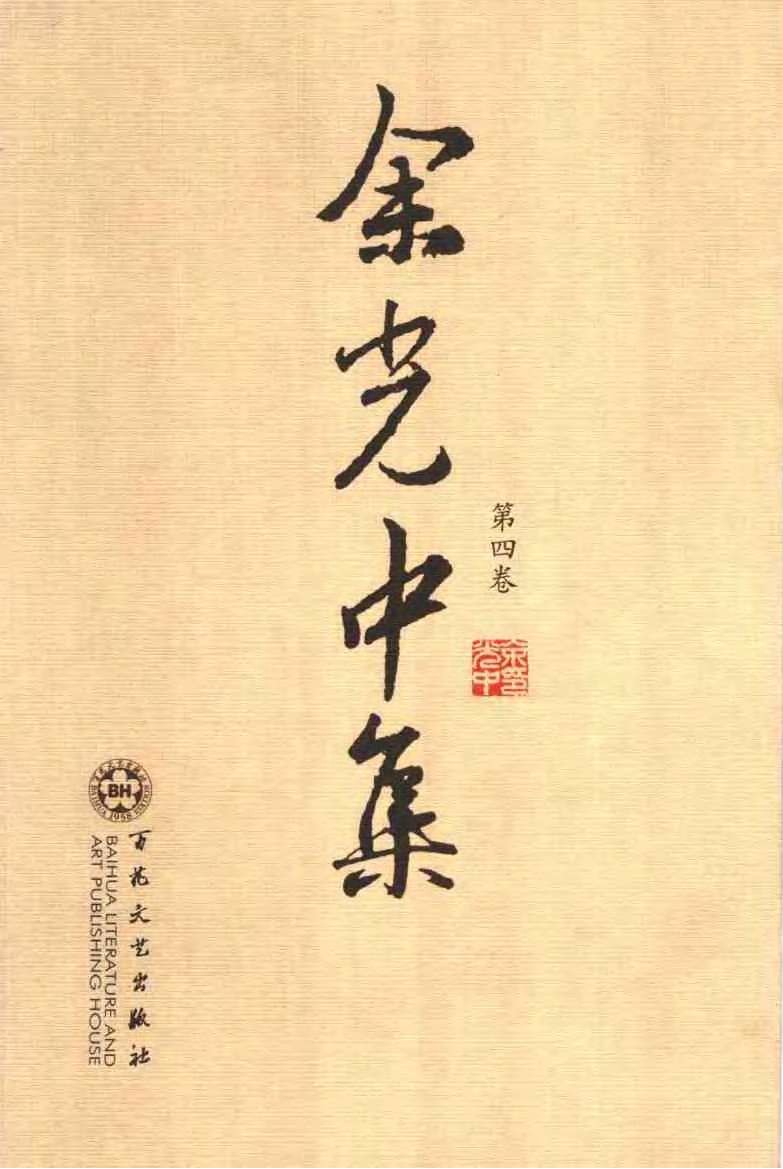 余光中集
第四卷
余光中印
BH
BAIHUA 1958
百花文艺出版社
BAIHUA LITERATURE AND
ART PUBLISHING HOUSE